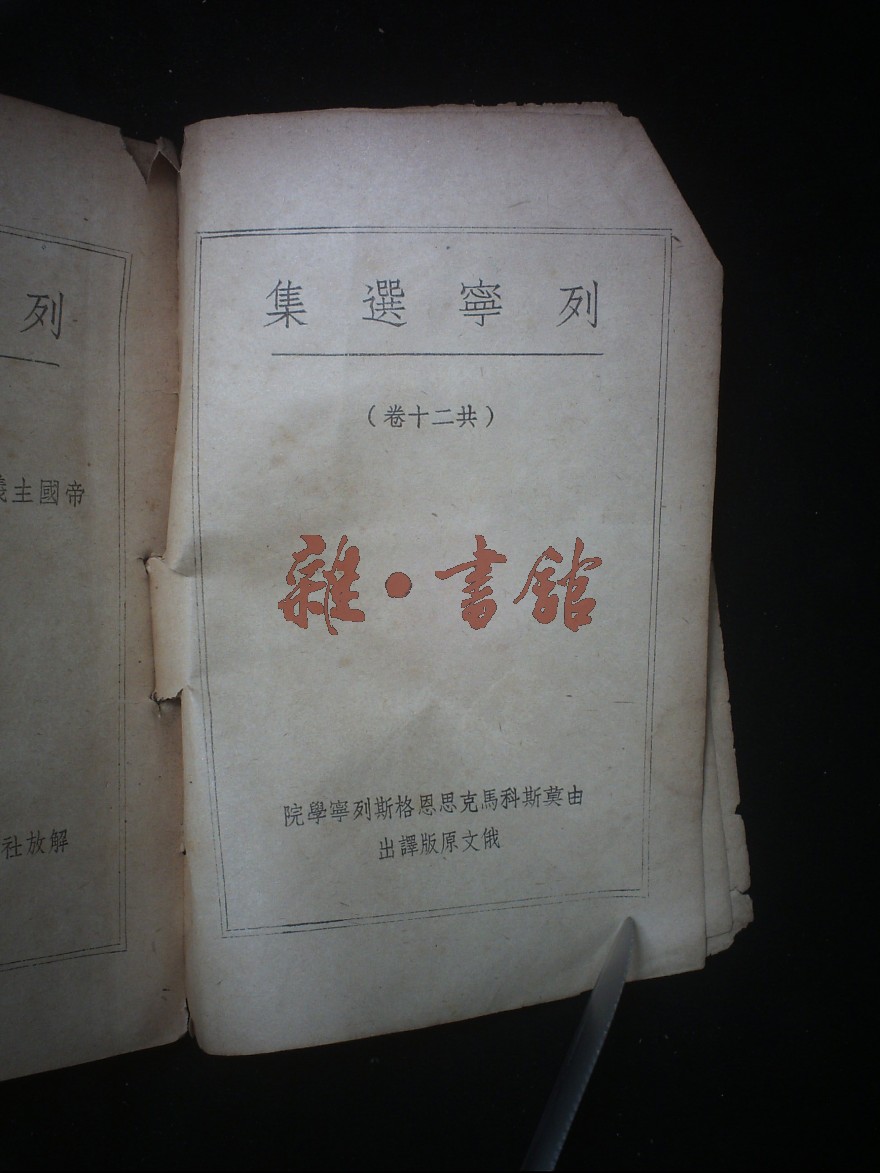 列
帝國主
解放社
列寧選集
(共二十卷)
雜·書館
由莫斯科馬克思恩格斯列寧學院
俄文原版譯出